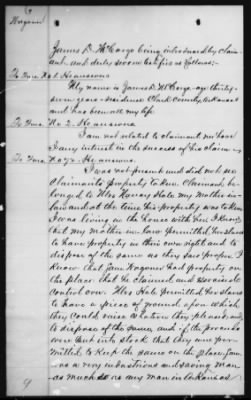 9
Wagoner
James D. McCargo being introduced by claim-
ant and duly sworn testifies as follows:
To Inre. No 1. He answers
My name is James D. McCargo age thirty-
seven years - residence Clark County, Arkansas
and has been all my life
To Inre. No 2. He answers
I am not related to claimant nor have
I any interest in the success of his claim
To Inre. No 7. He answers.
I was not present and did not see
claimants property taken. Claimant be-
longed to Mrs Hale my mother in
law and at the time his property was taken
I was living in the house with her. I know
that my mother in law permitted her slaves
to have property in their own right and to
dispose of the same as they saw proper. I
know that Jane Wagoner had property on
the place that he claimed and exercised
control over. Mrs Hale permitted her slaves
to have a piece of ground upon which
they could raise whatever they pleased and
to dispose of the same, and if the proceeds
were put into stock that they were per-
mitted to keep the same on the place. Jane
was a very industrious and saving man
as much so as any man in Arkansas
9